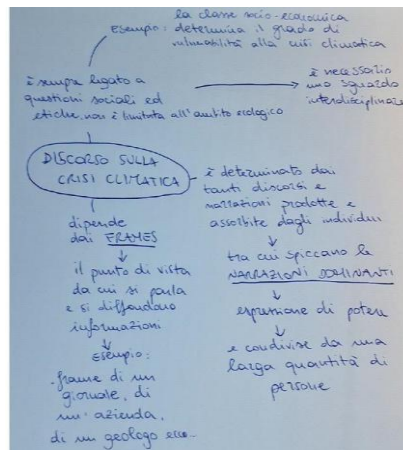 esempio: la classe socio-economica
determina il grado di
vulnerabilità alla crisi climatica
è sempre legato a
questioni sociali ed
etiche, non è limitata all'ambito ecologico
è necessario
uno sguardo
interdisciplinare
DISCORSO SULLA
CRISI CLIMATICA
dipende
dai FRAMES
il punto di vista
da cui si parla
e si diffondono
informazioni
esempio:
-frame di un
giornale, di
un'azienda,
di un geologo ecc-
è determinato dai
tanti discorsi e
narrazioni prodotte e
assorbite dagli individui
tra cui spiccano le
NARRAZIONI DOMINANTI
espressione di potere
e condivise da una
larga quantità di
persone